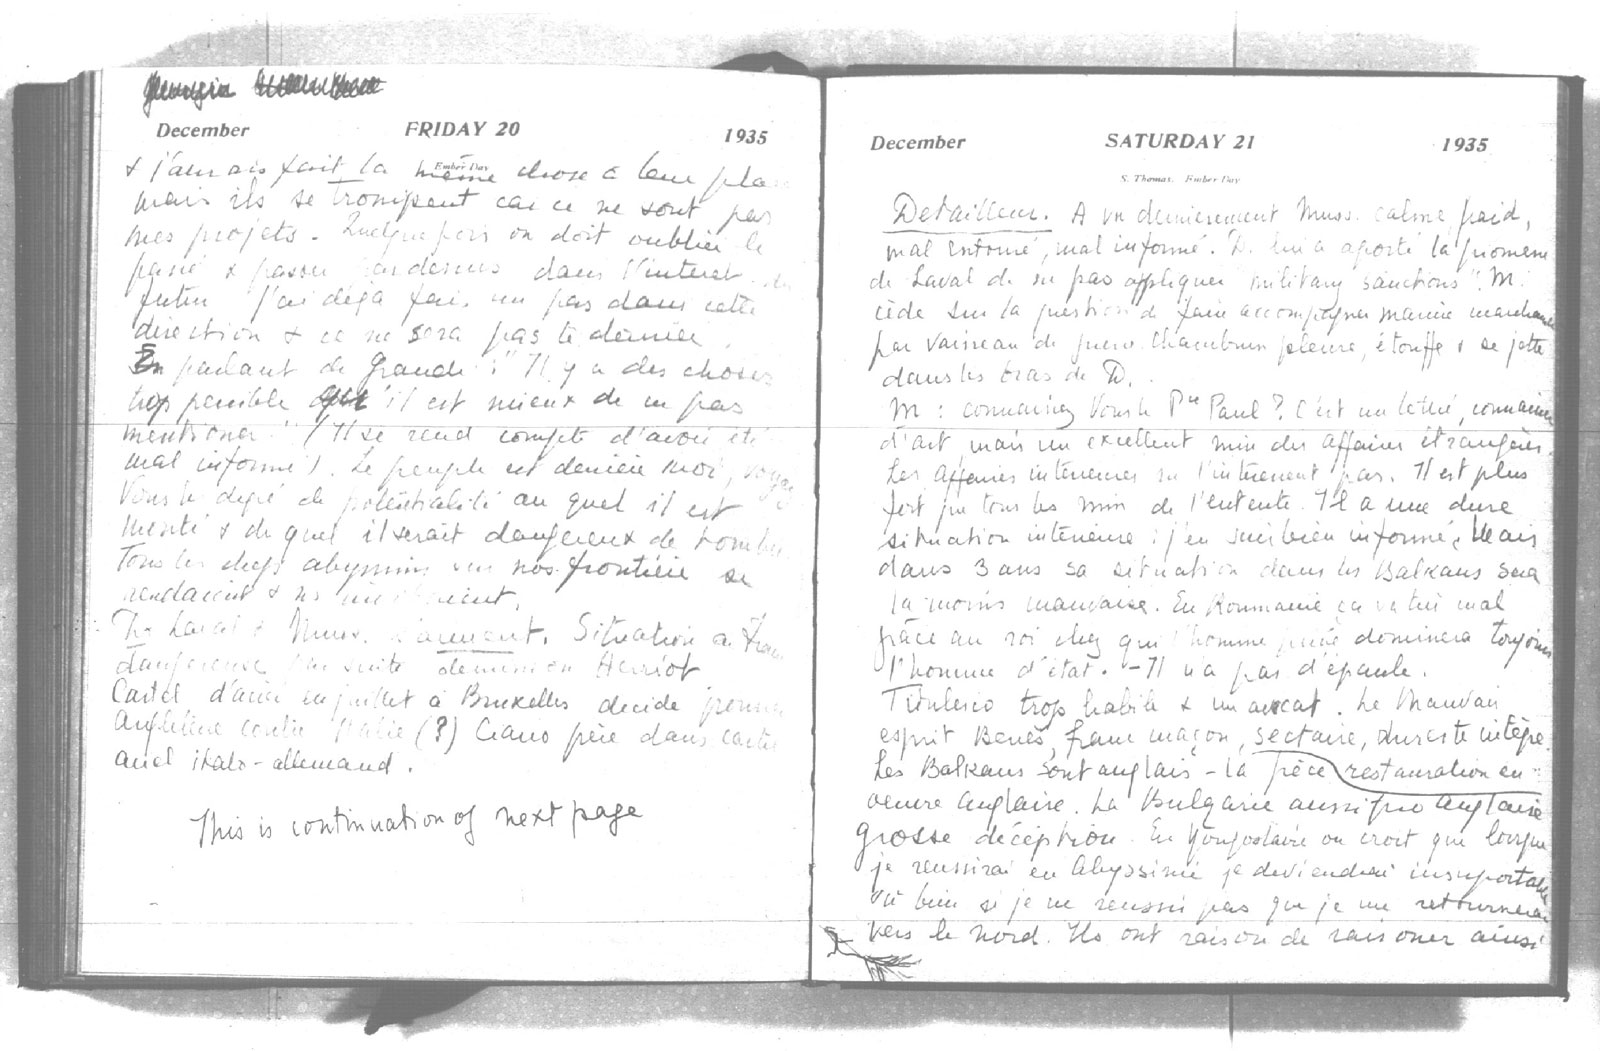 December FRIDAY 20 1935
Ember Day
& j'aurais fait la même chose à leur place
mais ils se trompent car ce ne sont pas
mes projets. Quelquefois on doit oublier le
passé & passer pardessus dans l'interet du
futur j'ai déjà fais un pas dans cette
direction & ce ne sera pas le dernier.
En parlant de Grandi : "Il y a des choses
trop penible qu'il est mieux de ne pas
mentioner." (Il se rend compte d'avoir été
mal informé). Le peuple est derrière moi, voyez
Vous le degré de potentialité au quel il est
monté & du quel il serait dangereux de tomber
Tous les chefs abyssins sur nos frontière se
rendaient &
Laval & Muss. s'aiment. Situation en France
dangereuse par suite demission Herriot
Cartel d'acier en juillet à Bruxelles decide
Angleterre contre Italie (?) Ciano père dans cartel
acier italo-allemand.
This is continuation of next page
December SATURDAY 21 1935
S. Thomas. Ember Day
Detailleur. A vu dernierement Muss. calme, froid,
mal entouré, mal informé. D. lui a aporté la promesse
de Laval de ne pas appliquer "military sanctions". M.
cède sur la question de faire accompagner marine marchande
par vaisseau de guerre. Chambrun pleure, étouffe & se jette
dans les bras de D.
M : connaissez Vous le Pce Paul ? C'est un lettré, connaisseur
d'art, mais un excellent min des affaires étrangères.
Les affaires interieures ne l'intéressent pas. Il est plus
fort que tous les min de l'entente. Il a une dure
situation intérieure : j'en suis bien informé. Mais
dans 3 ans sa situation dans les Balkans sera
la moins mauvaise. En Roumanie ça va très mal
grâce au roi chez qui l'homme privé dominera toujours
l'homme d'état. - Il n'a pas d'épaule.
Titulesco trop habile & un avocat. Le Mauvais
esprit Benes, franc maçon, sectaire, intègre.
Les Balkans sont anglais - la Grèce restauration en
oeuvre anglaise. La Bulgarie aussi pro anglaise
grosse déception. En Yougoslavie on croit que lorsque
je reussirai en Abyssinie je deviendrai insuportable
ou bien si je ne reussi pas que je me retournerai
vers le nord. Ils ont raison de raisoner ainsi